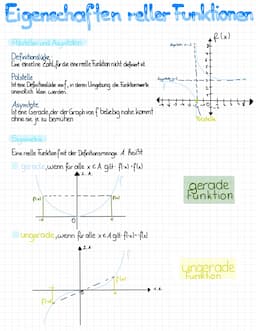 Eigenschaften reller Funktionen
Polstellen und Asymptoten
Definitionslücke
Eine einzelne Zahl, für die eine reelle Funktion nicht definiert ist
Polstelle
Ist eine Definitionslücke von f, in deren Umgebung die Funktionswerte
unendlich klein werden.
Asymptote
Ist eine Gerade, der der Graph von f beliebig nahe kommt
ohne sie je zu berühren
f(x)
Polstelle
Symmetrie
Eine reelle Funktion f mit der Definitionsmenge A heißt
gerade, wenn für alle x ∈ A gilt: f(-x)=f(x)
f(-x)
f(x)
2.A.
0
gerade
Funktion
ungerade, wenn für alle x ∈ A gilt: f(-x)=-f(x)
2.A.
f(x)
f(-x)
1.A.
ungerade
Funktion